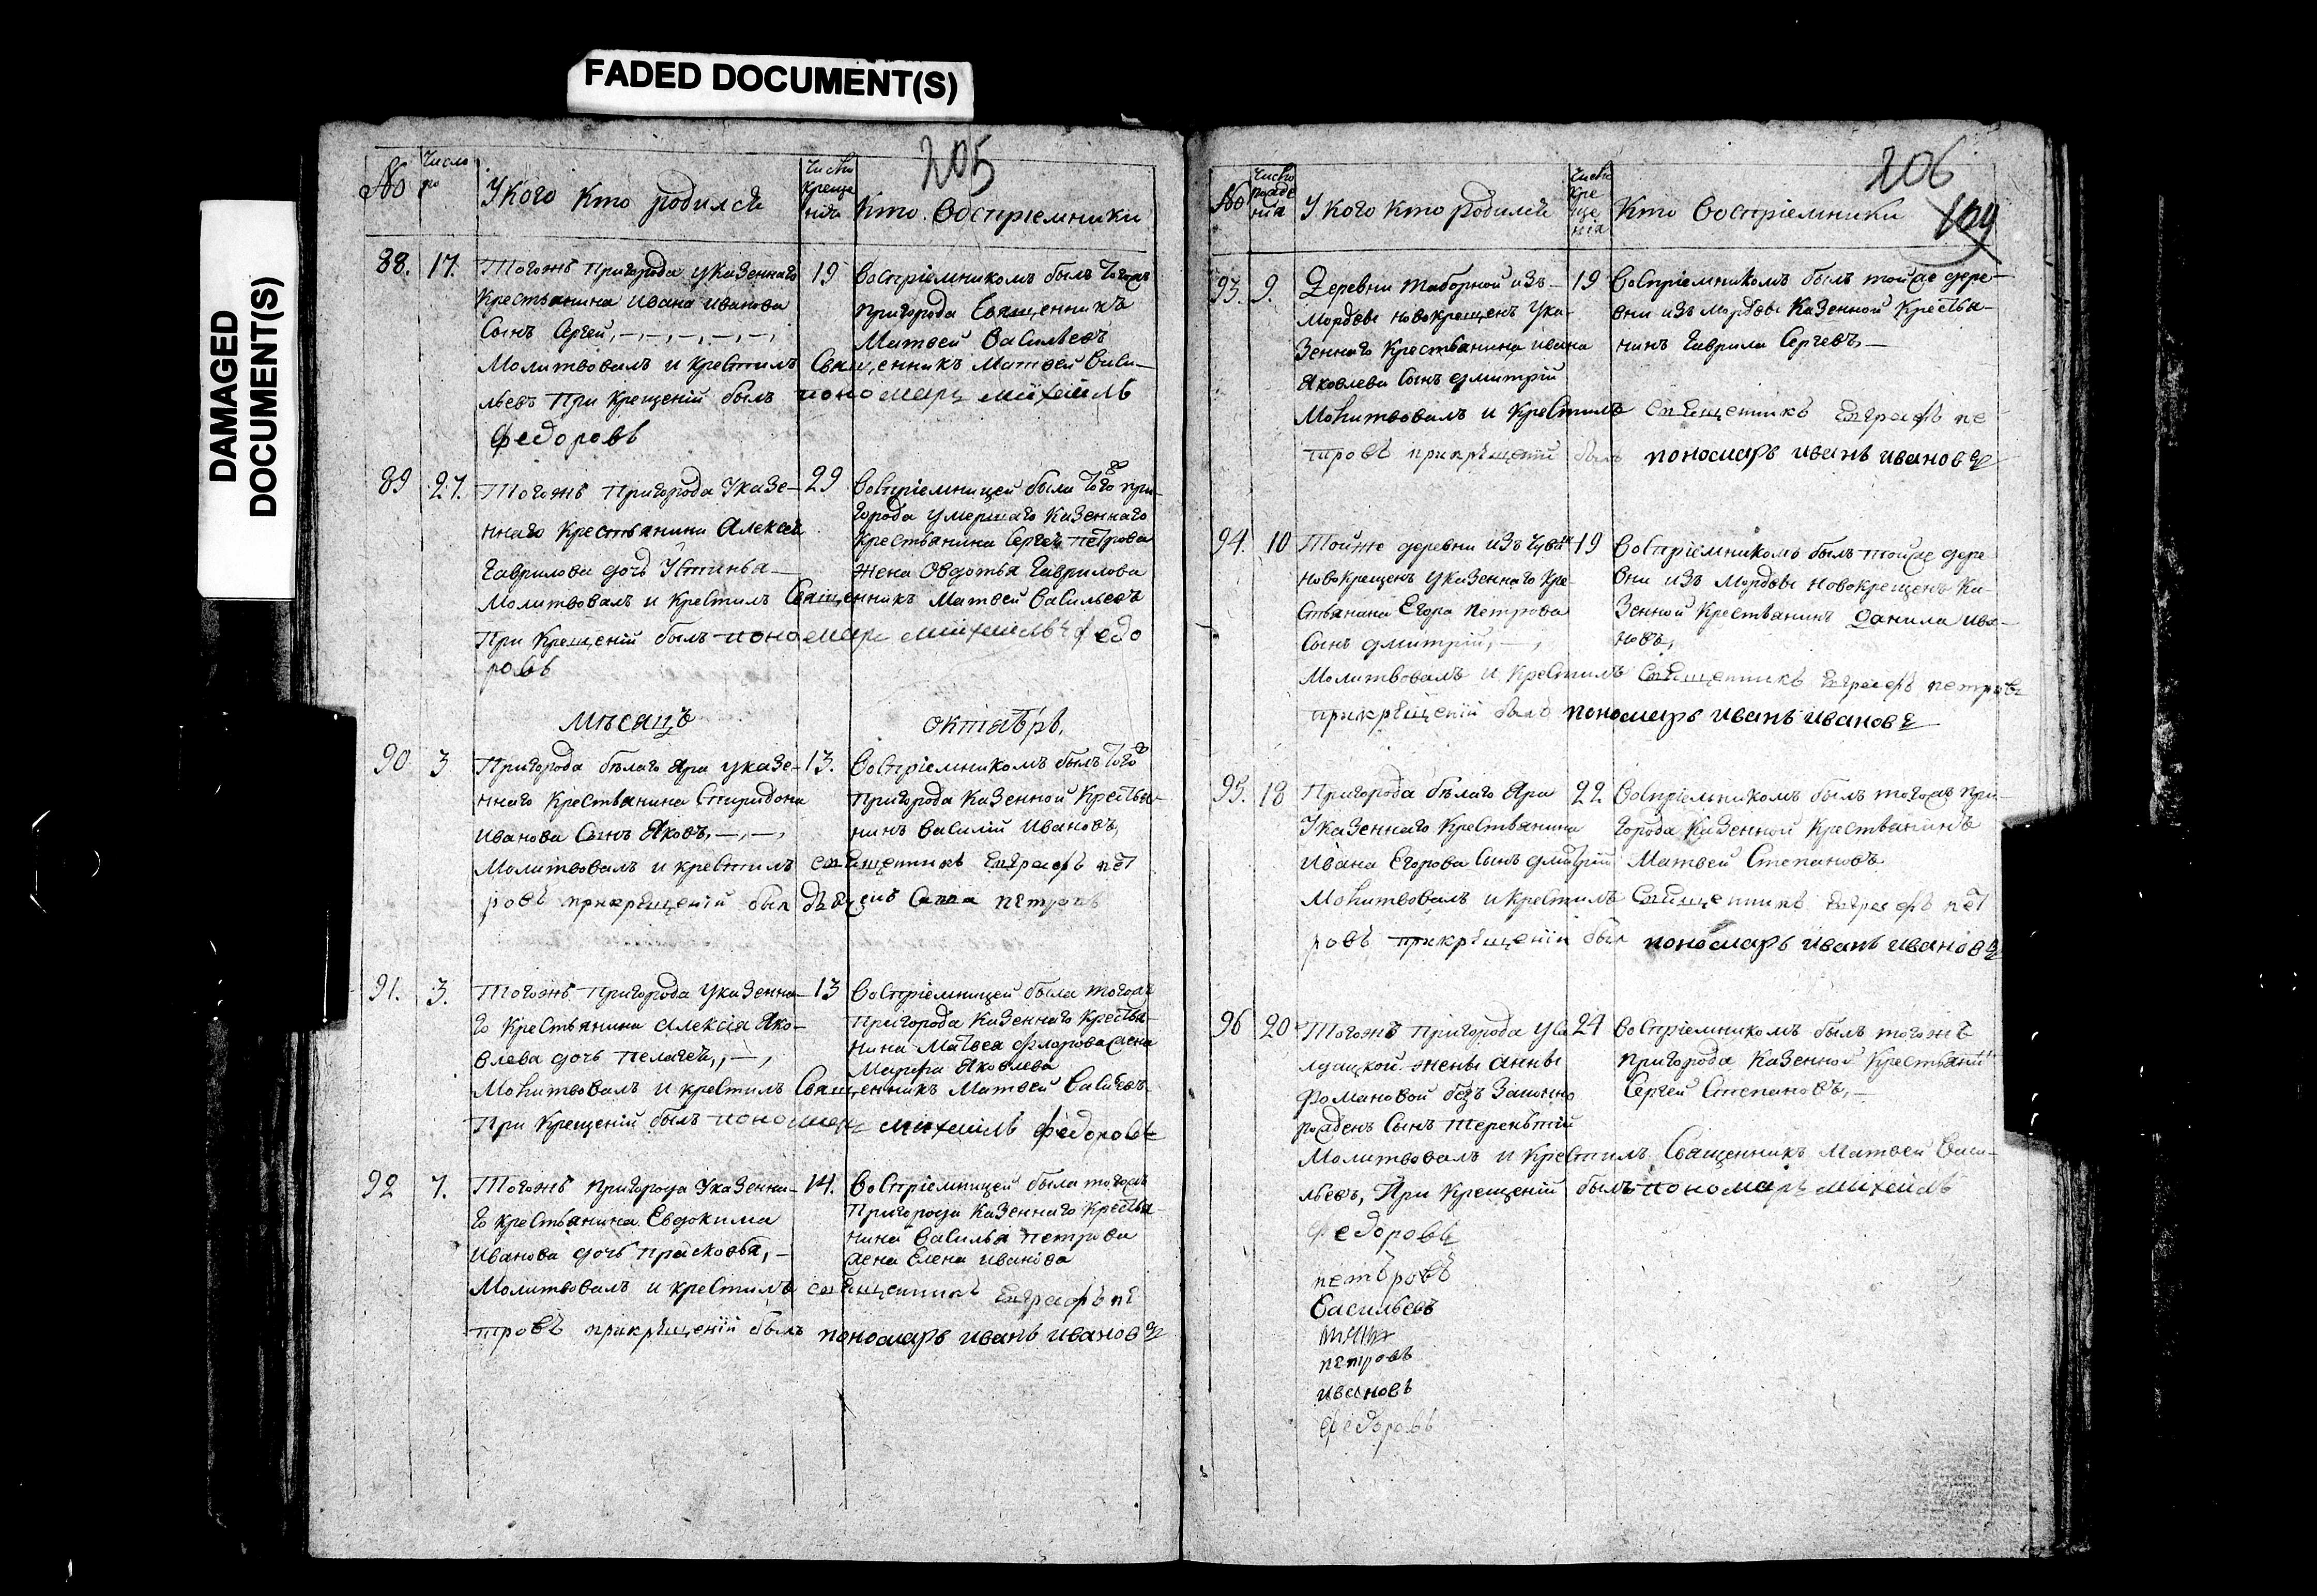 FADED DOCUMENT(S)
DAMAGED
DOCUMENT(S)
205
№
Число
ро
У кого кто родился
Число
креще
нія
Кто восприемники
88.
17.
Тогожъ пригорода указеннаго
крестьянина Ивана Иванова
Сынъ Сергей,
19
Восприемникомъ былъ тогожъ
пригорода Священникъ
Матвей Васильевъ
Молитвовалъ и крестилъ Священникъ Матвей Васи-
льевъ При крещеніи былъ пономарь михаилъ
федоровъ
89
27.
Тогожъ Пригорода Указе-
ннаго крестьянина Алексея
Гаврилова дочь Устинья
29
Восприемницей была того при-
города умершаго казеннаго
крестьянина Сергея петрова
жена Овдотья Гаврилова
Молитвовалъ и крестилъ Священникъ Матвей Васильевъ
При крещеніи былъ пономарь михаилъ федо
ровъ
Мѣсяцъ октябрь.
90
3
Пригорода бѣлаго Яра указе-
ннаго крестьянина Спиридона
Иванова Сынъ Яковъ,
13.
Восприемникомъ былъ того
пригорода казенной крестья-
нинъ Василій Ивановъ,
Молитвовалъ и крестилъ священникъ Евграфъ пет
ровъ прикрещеніи был петровъ
91.
3.
Тогожъ пригорода указенна-
го крестьянина Алексея Яко-
влева дочь пелагея,
13
Восприемницей была тогожъ
пригорода казеннаго крестья-
нина Матвея Флорова жена
Марфа Яковлева
Молитвовалъ и крестилъ Священникъ Матвей Васильевъ
При крещеніи былъ пономарь михаилъ федоровъ
92
7.
Тогожъ пригорода Указенна-
го крестьянина Евдокима
Иванова дочь прасковья,
14.
Восприемницей была тогожъ
Пригорода казеннаго крестья-
нина Василья петрова
жена Елена Иванова
Молитвовалъ и крестилъ священникъ Евграфъ пе
тровъ прикрещеніи былъ пономарь иванъ ивановъ
206
109
№
Число
рожде
нія
У кого кто родился
Число
кре
ще
нія
Кто восприемники
93.
9.
Деревни таборной изъ
Мордвы новокрещенъ ука-
зеннаго крестьянина ивана
Яковлева Сынъ дмитрій
19
Восприемникомъ былъ тойже дере-
вни изъ мордвы казенной крестья-
нинъ Гаврила Сергевъ,
Молитвовалъ и крестилъ священникъ Евграфъ пе
тровъ прикрещеніи былъ пономарь иванъ ивановъ
94.
10
Тойже деревни изъ чуваш
новокрещенъ указеннаго кре-
стьянина Егора петрова
Сынъ дмитрій,
19
Восприемникомъ былъ тойже дере
вни изъ мордвы новокрещенъ ка-
зенной крестьянинъ данила ива-
новъ,
Молитвовалъ и крестилъ священникъ Евграфъ петровъ
прикрещеніи былъ пономарь иванъ ивановъ
95.
18
Пригорода бѣлаго Яра
Указеннаго крестьянина
Ивана Егорова Сынъ дмитрій
22
Восприемникомъ былъ тогожъ при-
города казенной крестьянинъ
Матвей Степановъ
Молитвовалъ и крестилъ священникъ Евграфъ пет
ровъ прикрещеніи был пономарь иванъ ивановъ
96
20
Тогожъ пригорода у со
лдацкой жены анны
Романовой безъ законно
рожденъ Сынъ терентій
24
Восприемникомъ былъ тогожъ
пригорода казенной крестьяни
Сергей Степановъ,
Молитвовалъ и крестилъ Священникъ Матвей Васи-
льевъ, При крещеніи былъ пономарь михаилъ
федоровъ
петъровъ
Васильевъ
петровъ
ивановъ
федоровъ